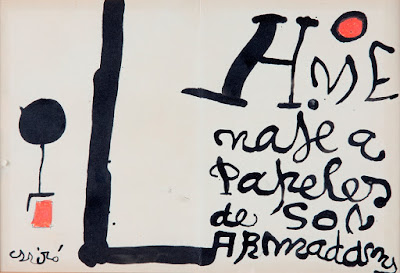 HoME
naJe a
Papeles
de SON
ARMadans
Miró